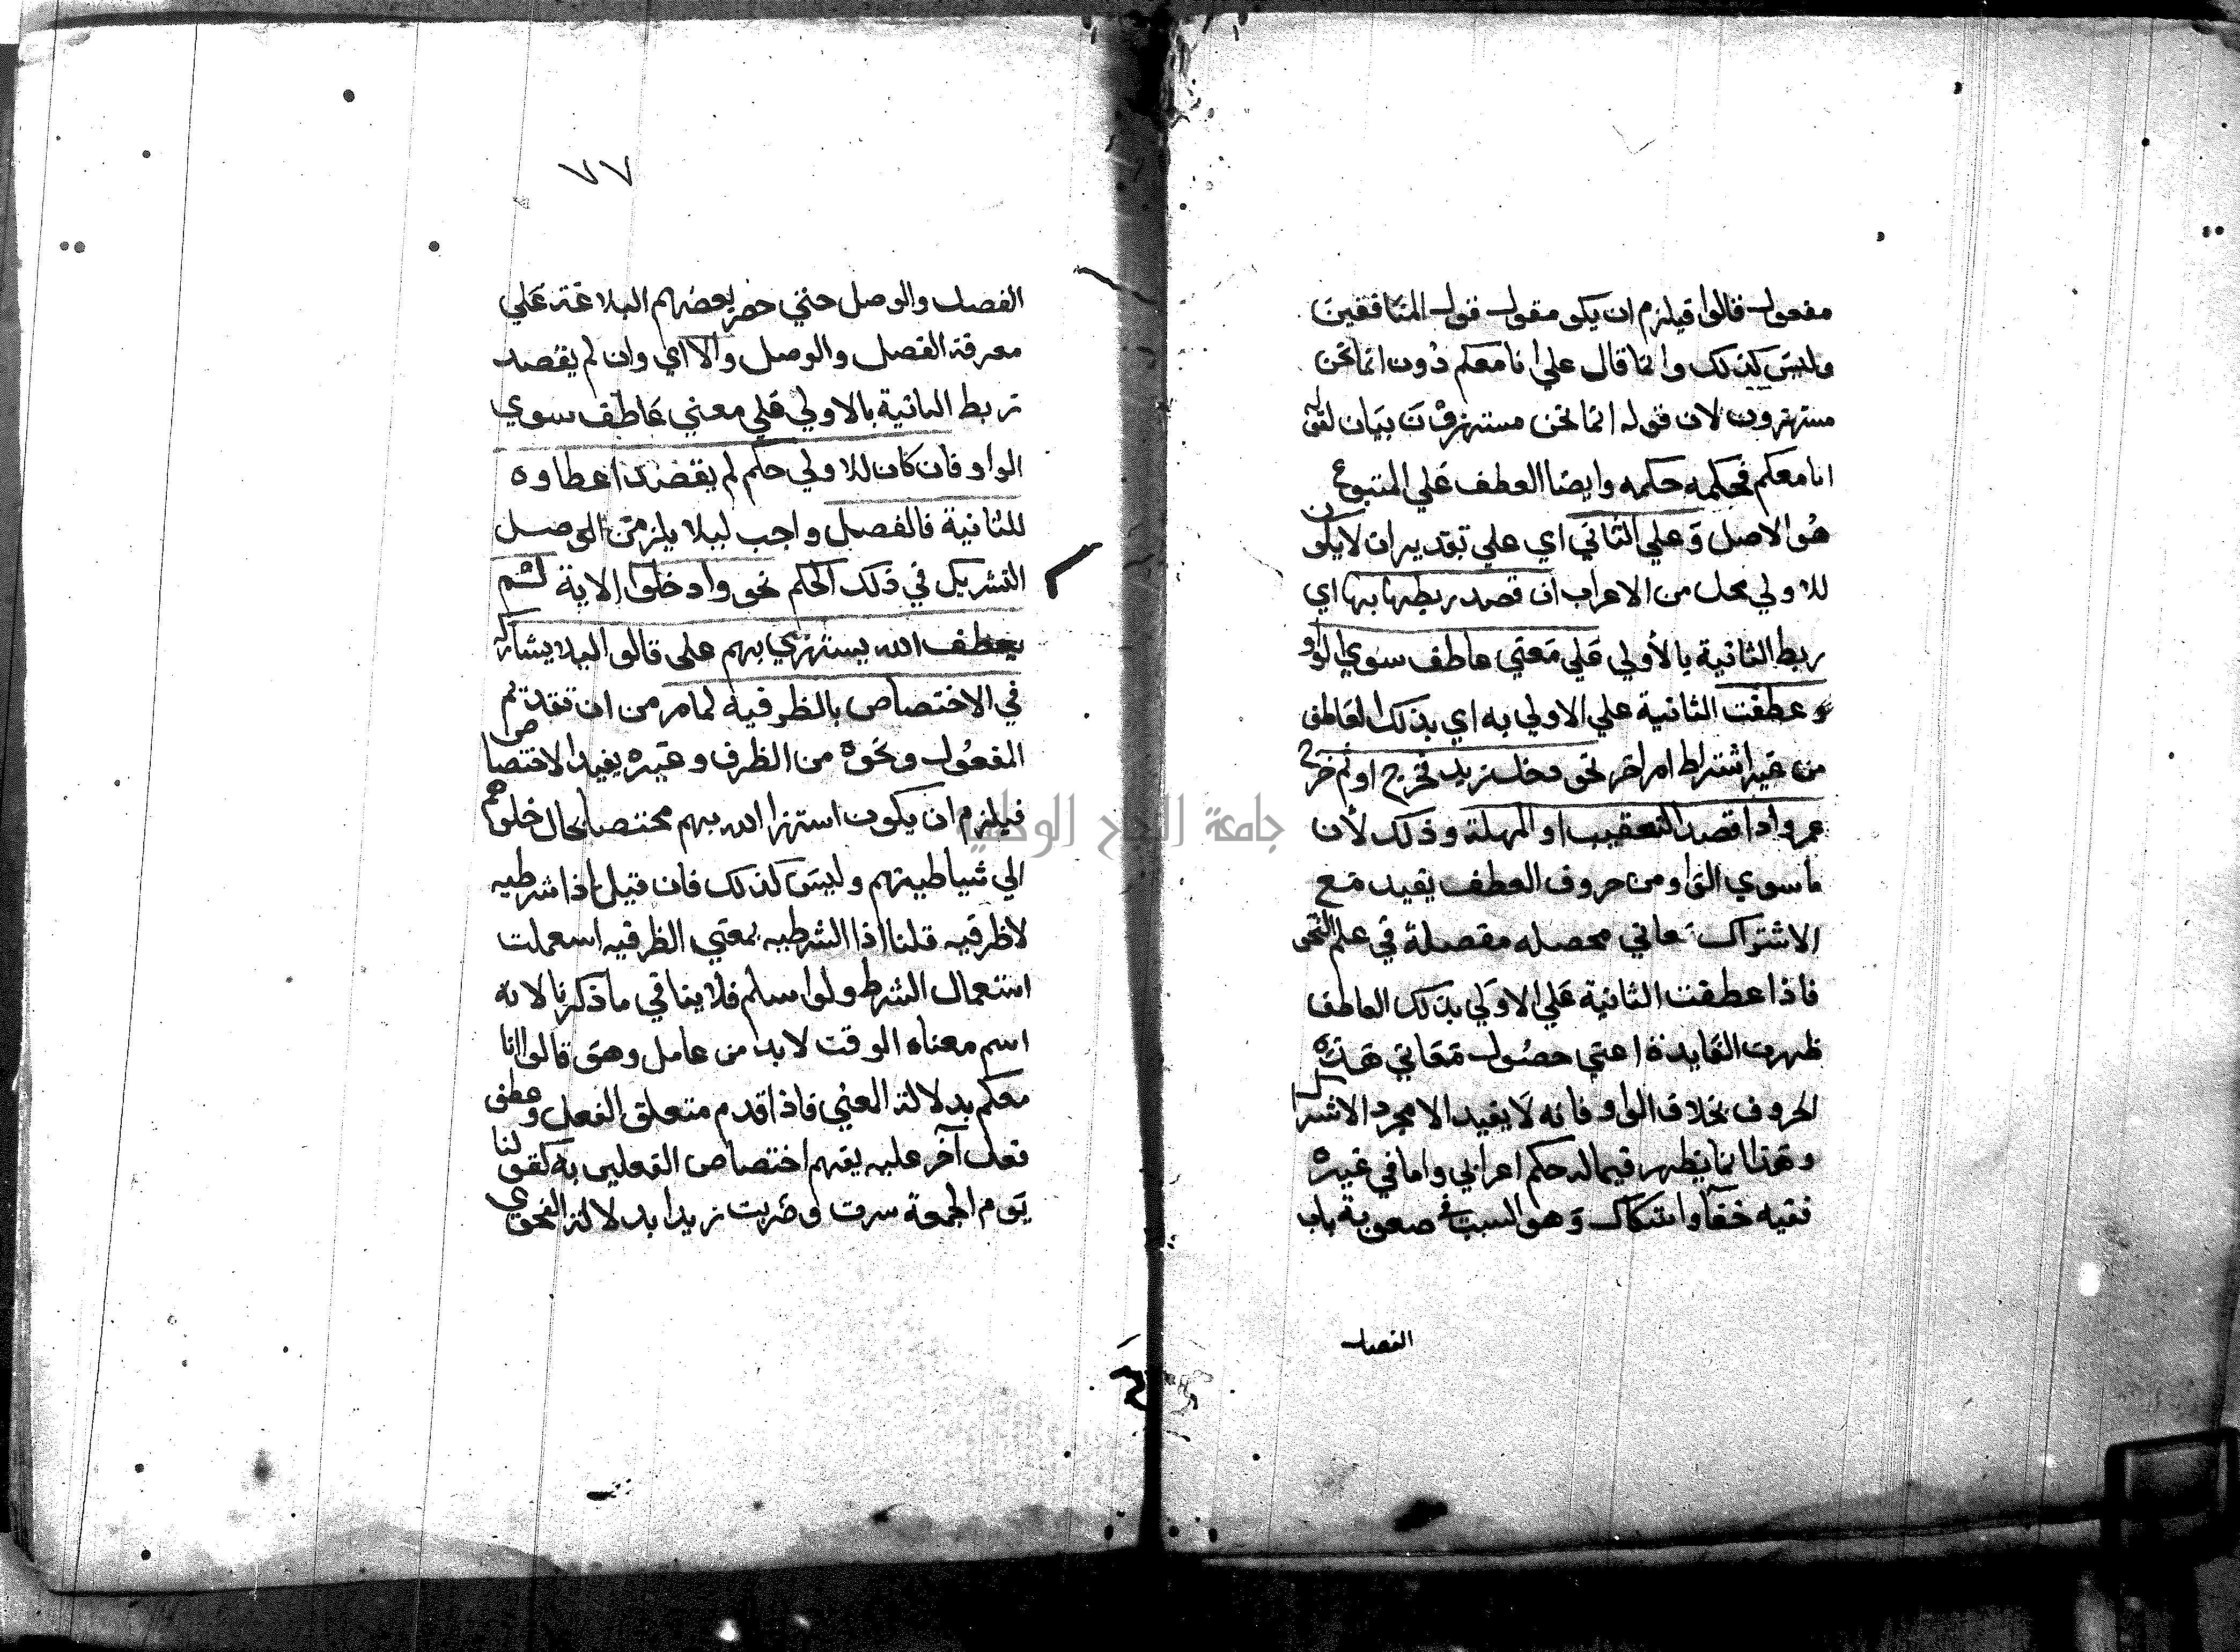 مفعول قالوا فيلزم ان يكو مقول قول المنافقين
وليس كذلك وانما قال علي انا معكم دون انما نحن
مستهزون لان قوله انما نحن مستهزؤن بيان لقوله
انا معكم فحكمه حكمه وايضا العطف علي المتبوع
هو الاصل وعلي الثاني اي علي تقدير ان لا يكون
للاولي محل من الاعراب ان قصد ربطها بها اي
ربط الثانية بالاولي علي معني عاطف سوي الواو
عطفت الثانية علي الاولي به اي بذلك العاطف
من غير اشتراط امر اخر نحو دخل زيد فخرج او ثم خرج
عمرو اذا قصد التعقيب او المهلة وذلك لأن
ما سوي الواو من حروف العطف يفيد مع
الاشتراك معاني محصله مفصلة في علم النحو
فاذا عطفت الثانية علي الاولي بذلك العاطف
ظهرت الفايدة اعني حصول معاني هذه
الحروف بخلاف الواو فانه لا يفيد الا مجرد الاشتراك
وهذا انما يظهر فيما له حكم اعرابي واما في غيره
ففيه خفا واشكال وهو السبب في صعوبة باب
الفصل
٧٧
الفصل والوصل حتي حصر بعضهم البلاغة علي
معرفة الفصل والوصل والا اي وان لم يقصد
ربط الثانية بالاولي علي معني عاطف سوي
الواو فان كان للاولي حكم لم يقصد اعطاوه
للثانية فالفصل واجب ليلا يلزم من الوصل
التشريك في ذلك الحكم نحو واد خلوا الاية لم
يعطف الله يستهزي بهم علي قالوا ليلا يشاركه
في الاختصاص بالظرفية لما مر من ان تقديم
المفعول ونحوه من الظرف وغيره يفيد الاختصاص
فيلزم ان يكون استهزا الله بهم مختصا بحال خلوهم
الي شياطينهم وليس كذلك فان قيل اذا شرطيه
لا ظرفيه قلنا اذا الشرطيه بمعني الظرفيه اسعملت
استعمال الشرط ولوا سلم فلا ينافي ما ذكرنا لانه
اسم معناه الوقت لا بد من عامل وهو قالوا انا
معكم بدلالة المعني فاذا قدم متعلق الفعل وعطف
فعل آخر عليه يفهم اختصاص الفعلين به كقولنا
يوم الجمعة سرت وضربت زيدا بدلالة الفحوي
جامعة النجاح الوطنية